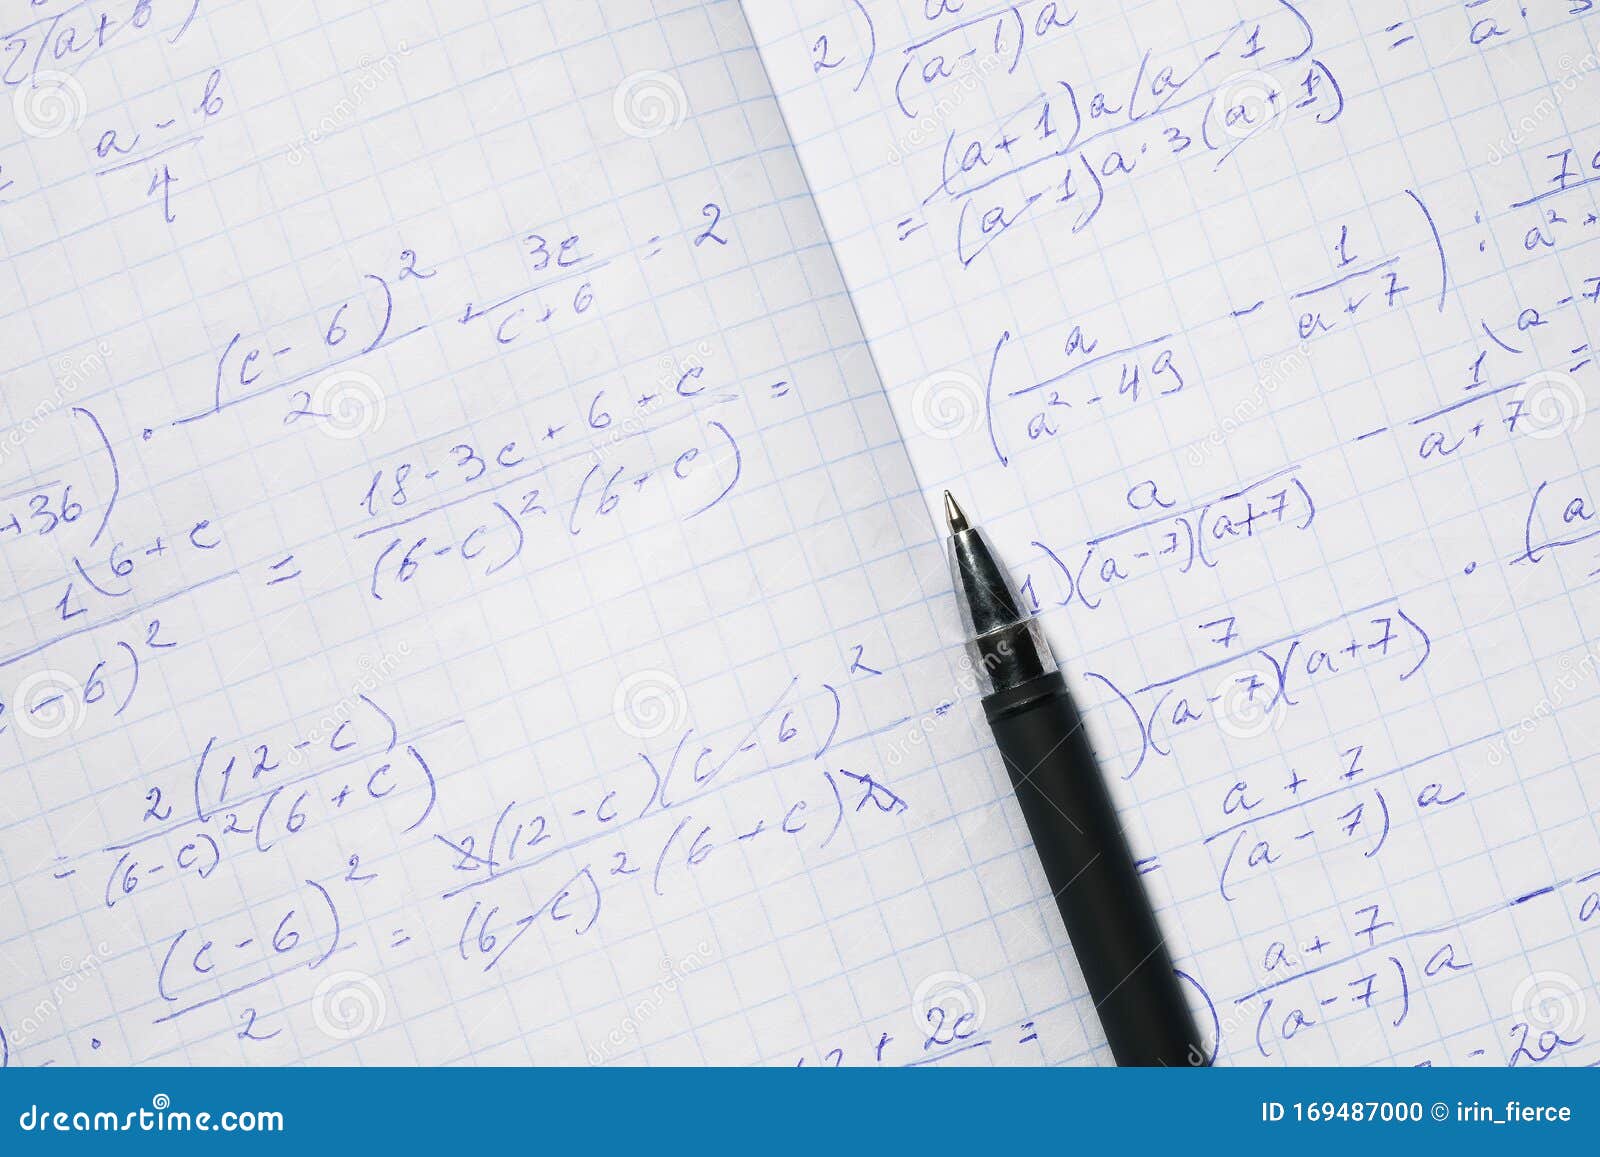 2(a+b)
a - b
4
(c - 6)² + 3c = 2
2 c + 6
+36) ·
18 - 3c + 6 + c =
1\6 + c = (6 - c)² (6 + c)
- 6)²
2(12 - c)
= (6 - c)² (6 + c)
· (c - 6)² = 2(12 - c)(c - 6)² =
2 (6 - c)² (6 + c) 2
+ 2c =
2)
(a - 1)a
(a + 1)a(a - 1) = a · 3
= (a - 1)a · 3(a + 1)
(a - 1) : 7
a² - 49 a + 7 a² +
- 1\a - 7 =
a + 7
1) a
(a - 7)(a + 7) · (a
) 7
(a - 7)(a + 7)
a + 7
= (a - 7) a
) a + 7 -
(a - 7) a
- 2a
dreamstime.com
ID 169487000 © irin_fierce